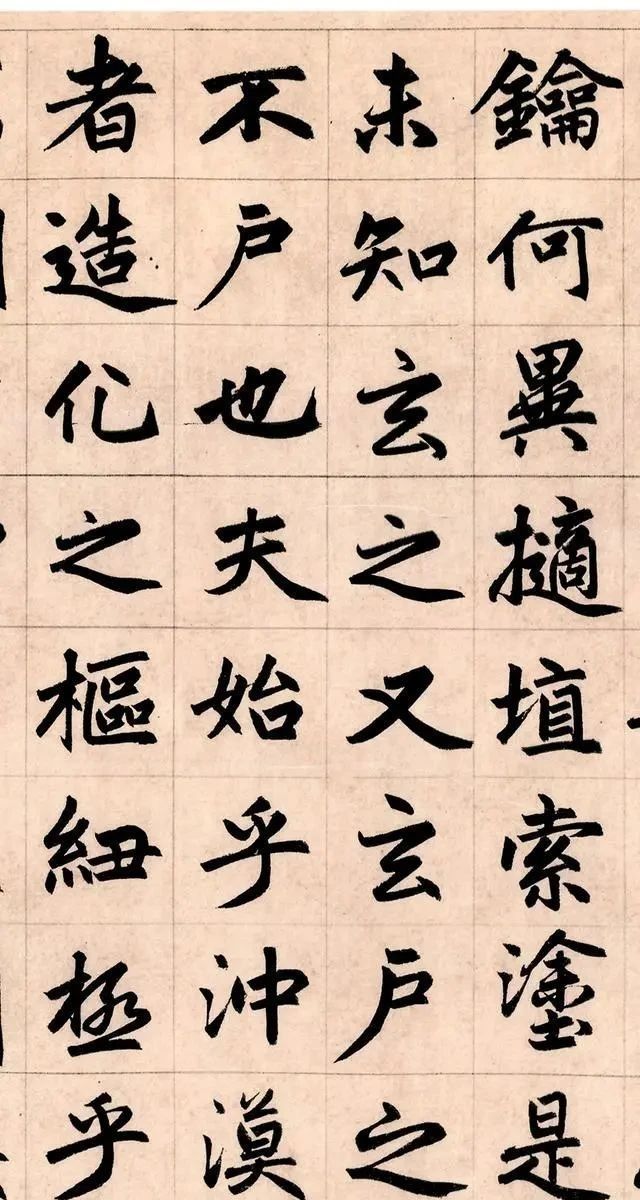 鑰何異擿埴索塗是
未知玄之又玄戶之
不戶也夫始乎沖漠
者造化之樞紐極乎